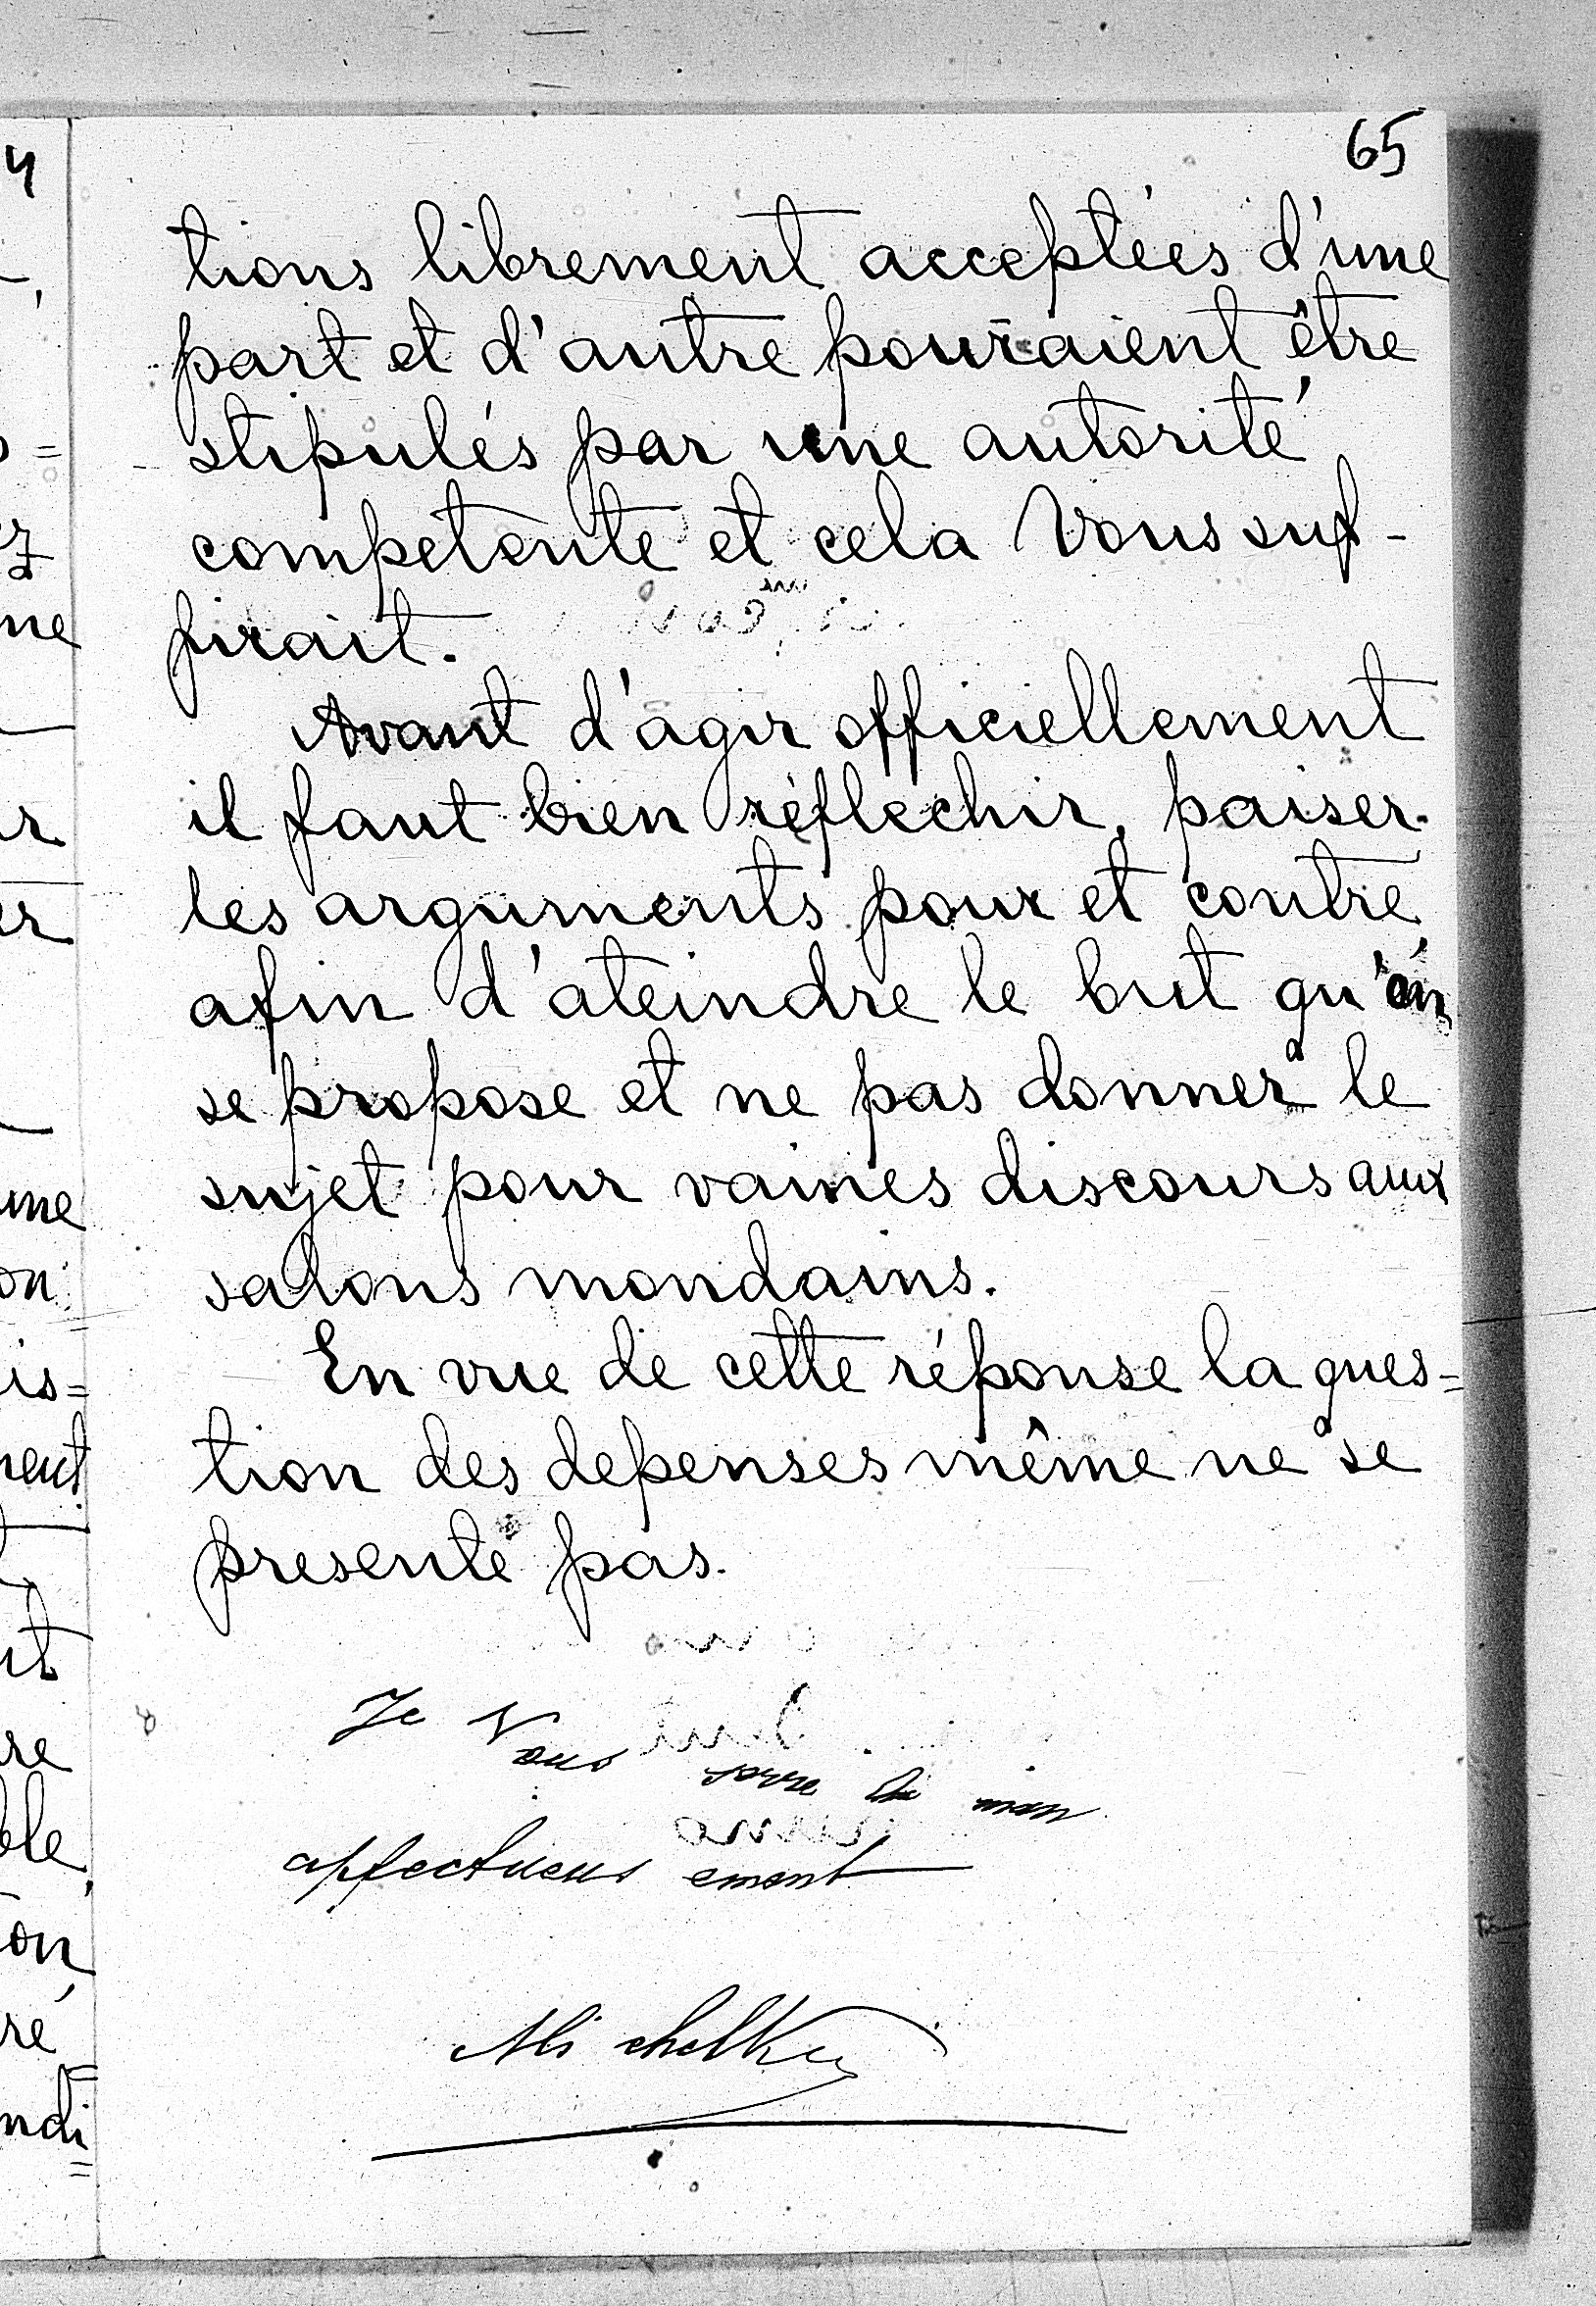 65
tions librement acceptées d'une
part et d'autre pouraient être
stipulés par une autorité
competente et cela Vous suf-
firait.
Avant d'agir officiellement
il faut bien réflechir, paiser
les arguments pour et contre
afin d'ateindre le but qu'on
se propose et ne pas donner le
sujet pour vaines discours aux
salons mondains.
En vue de cette réponse la ques=
tion des depenses même ne se
presente pas.
Je Vous serre la main
affectueusement